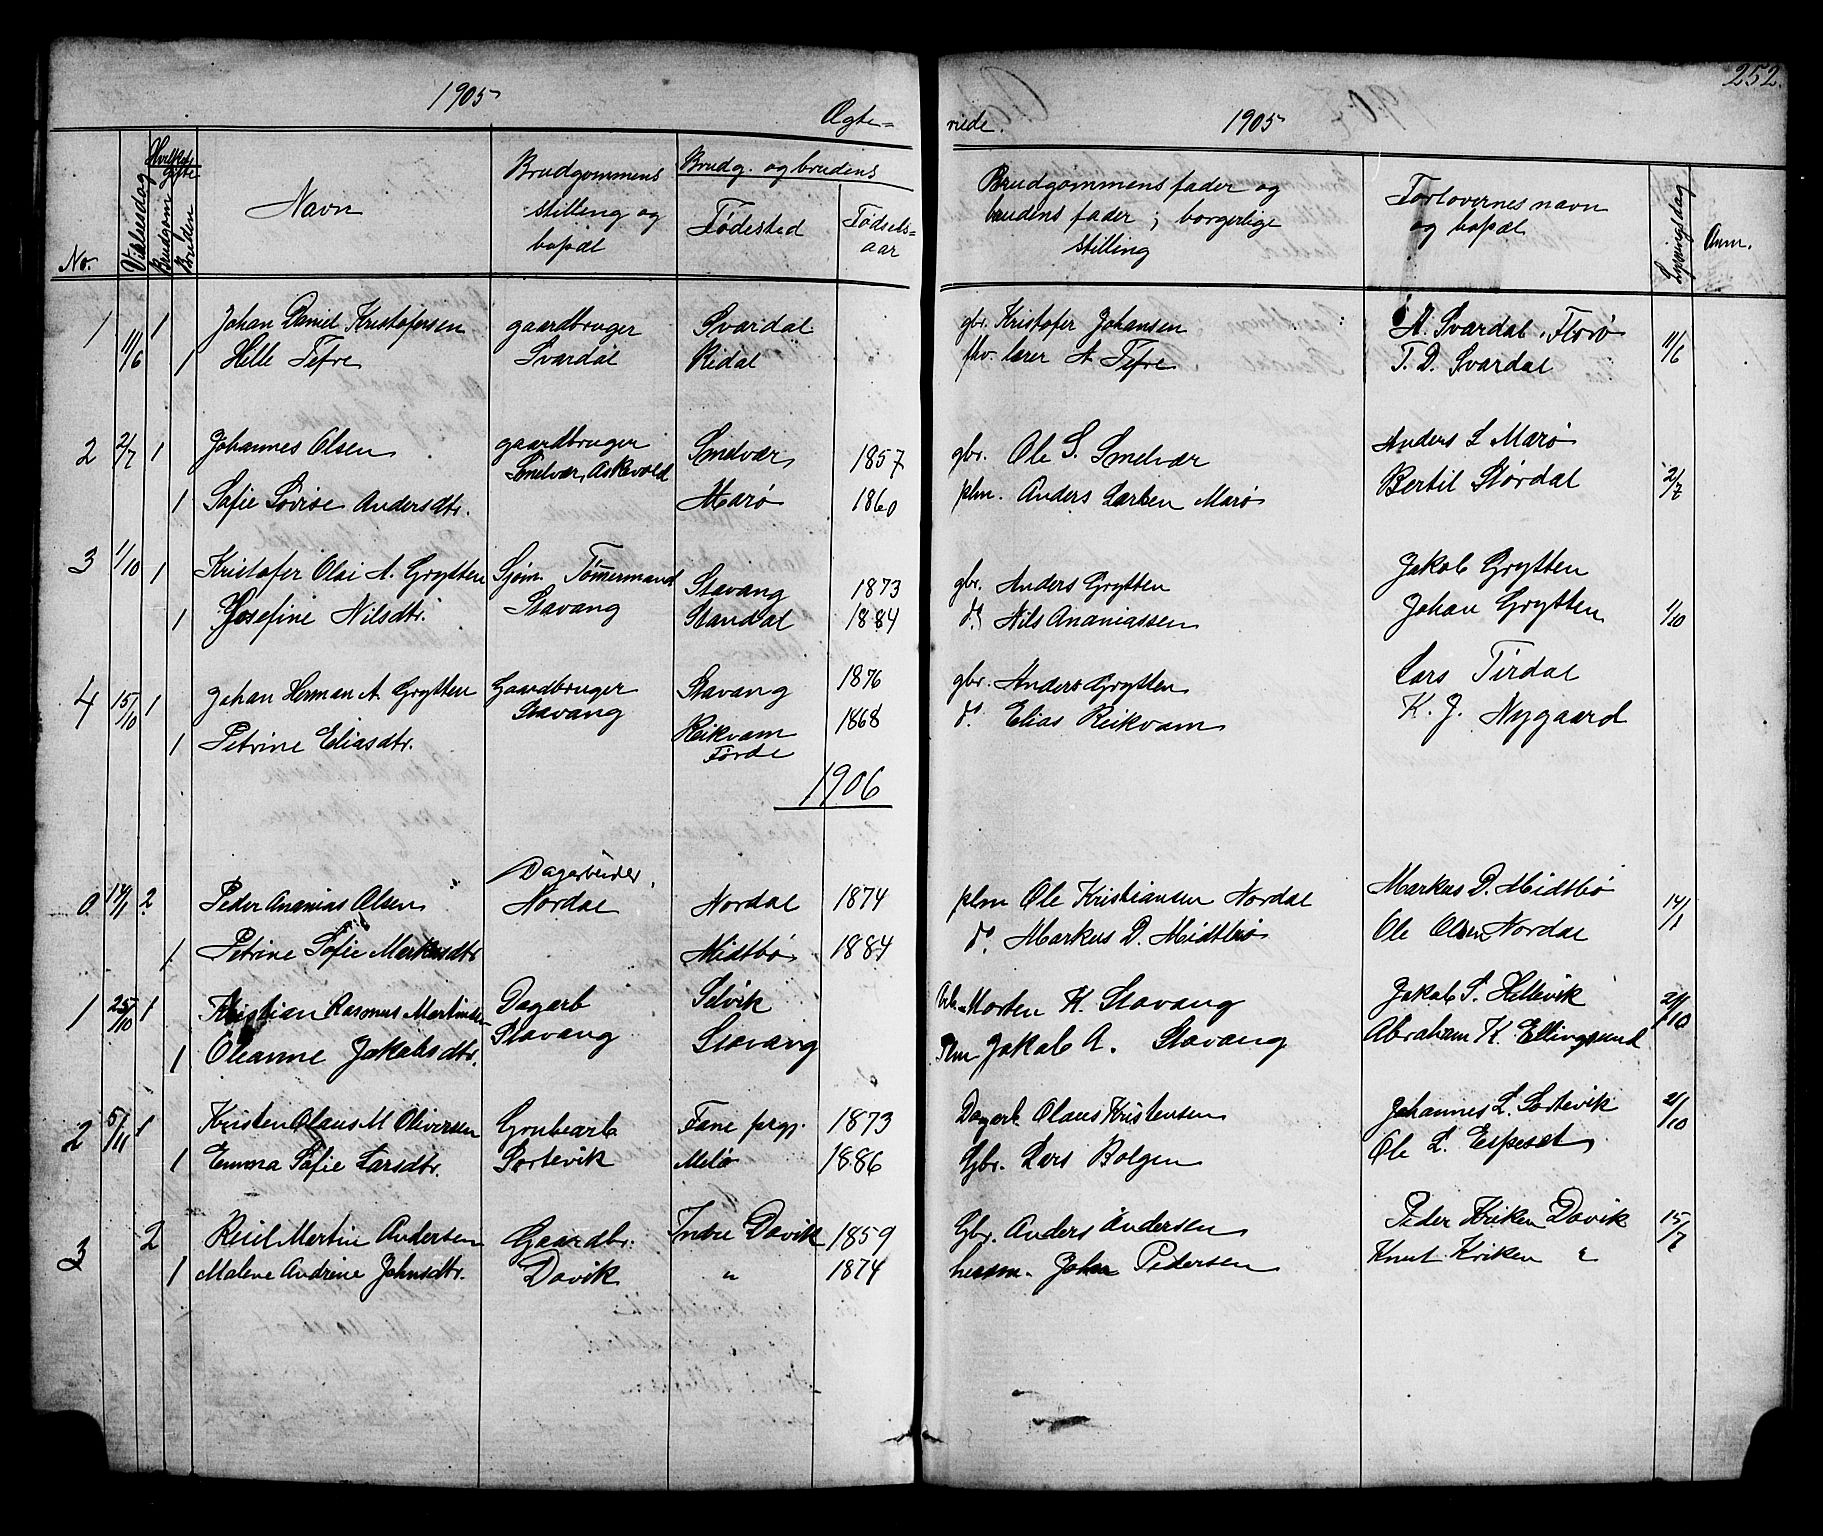 1905
Ægte-
viede.
1905
252.
No.
Vielsesdag
Hvilket Gifte
Brudgom
Bruden
Navn
Brudgommens
stilling og
bopæl
Brudg. og brudens
Fødested
Fødsels=
aar
Brudgommens fader og
brudens fader; borgerlige
stilling
Forlovernes navn
og bopæl
Lysningsdag
Anm.
1 11/6 1 Johan Daniel Kristofersen gaardbruger Svardal gbr. Kristofer Johansen A. Svardal, Florø 11/6
1 Hille Tefre Svardal Ridal fhv. lærer A Tefre T. D. Svardal
2 2/7 1 Johannes Olsen gaardbruger Smelvær 1857 gbr. Ole S. Smelvær Anders L Marø
Smelvær, Askevold
1 Sofie Lovise Andersdtr. Marø 1860 plm. Anders Larsen Marø Bertil Størdal 2/7
3 1/10 1 Kristofer Olai A. Grytten Sjøm. Tømmermand Stavang 1873 gbr. Anders Grytten Jakob Grytten
1 Josefine Nilsdtr. Stavang Standal 1884 do. Nils Ananiassen Johan Grytten 1/10
4 15/10 1 Johan Herman A Grytten Gaardbruger Stavang 1876 gbr. Anders Grytten Lars Tirdal
Stavang
1 Petrine Eliasdtr. Reikvam 1868 do. Elias Reikvam K. J. Nygaard
Førde
1906
0. 14/1 2 Peder Ananias Olsen Dagarbeider, Nordal Nordal 1874 plm Ole Kristiansen Nordal Markus D. Midtbø 14/1
1 Petrine Sofie Markusdtr Midtbø 1884 do. Markus D. Midtbø Ole Olsen Nordal
1 25/10 1 Kristian Rasmus Martinsen Dagarb Selvik Morten K. Stavang Jakob S. Hellevik
1 Oleanne Jakobsdtr. Stavang Stavang Plm Jakob A. Stavang Abraham K. Ellingsund
2 5/11 1 Kristen Olaus M Oliversen Grubearb Fane prgj. 1873 Dagarb. Olaus Kristensen Johannes L. Sortevik 21/10
1 Emma Sofie Larsdtr. Sortevik Melø 1886 Gbr. Lars Bolgen Ole L. Espeset
3 2 Reiel Martin Andersen Gaardbr. Indre Davik 1859 Gbr. Anders Andersen Peder Kriken Davik 15/7
1 Malene Andrine Johnsdtr. Davik " 1874 husm. John Pedersen Knut Kriken "